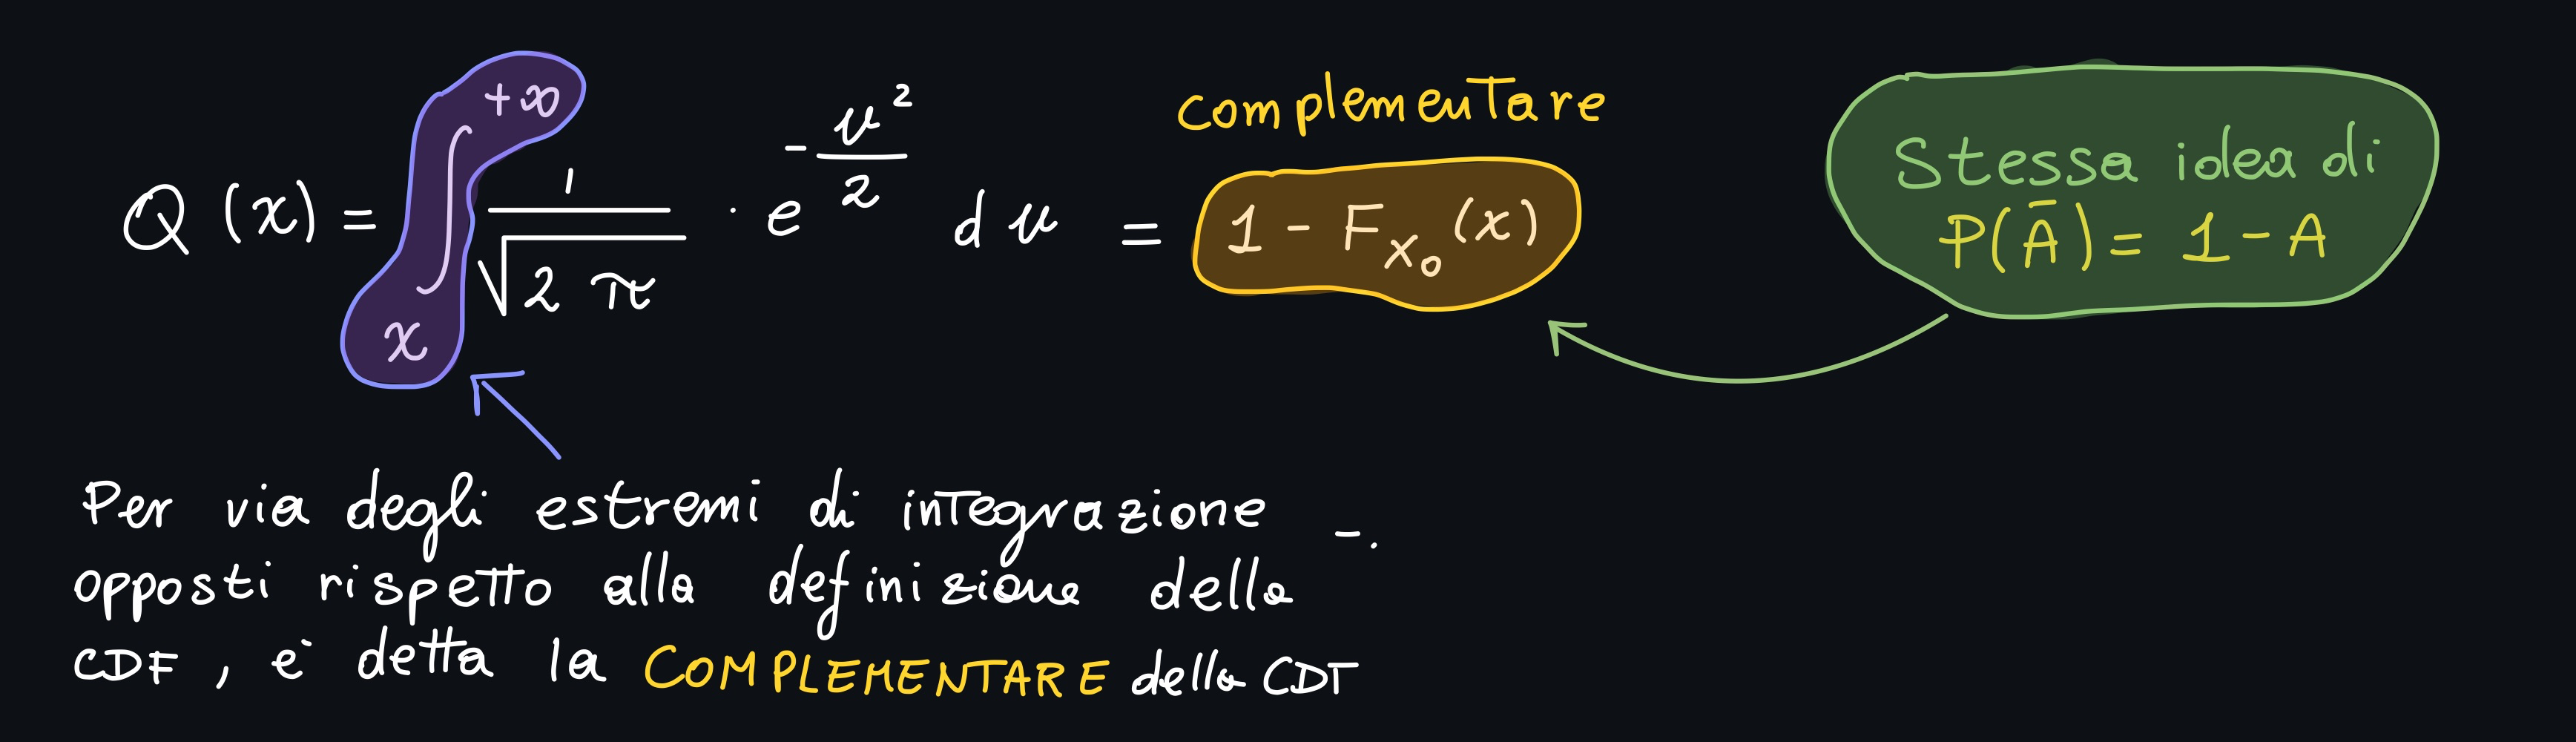 Q(x) = ∫ₓ^{+∞} 1/√(2π) · e^{-u²/2} du = 1 - F_{X₀}(x)
complementare
Stessa idea di
P(Ā) = 1 - A
Per via degli estremi di integrazione -.
opposti rispetto alla definizione della
CDF, e` detta la COMPLEMENTARE della CDT